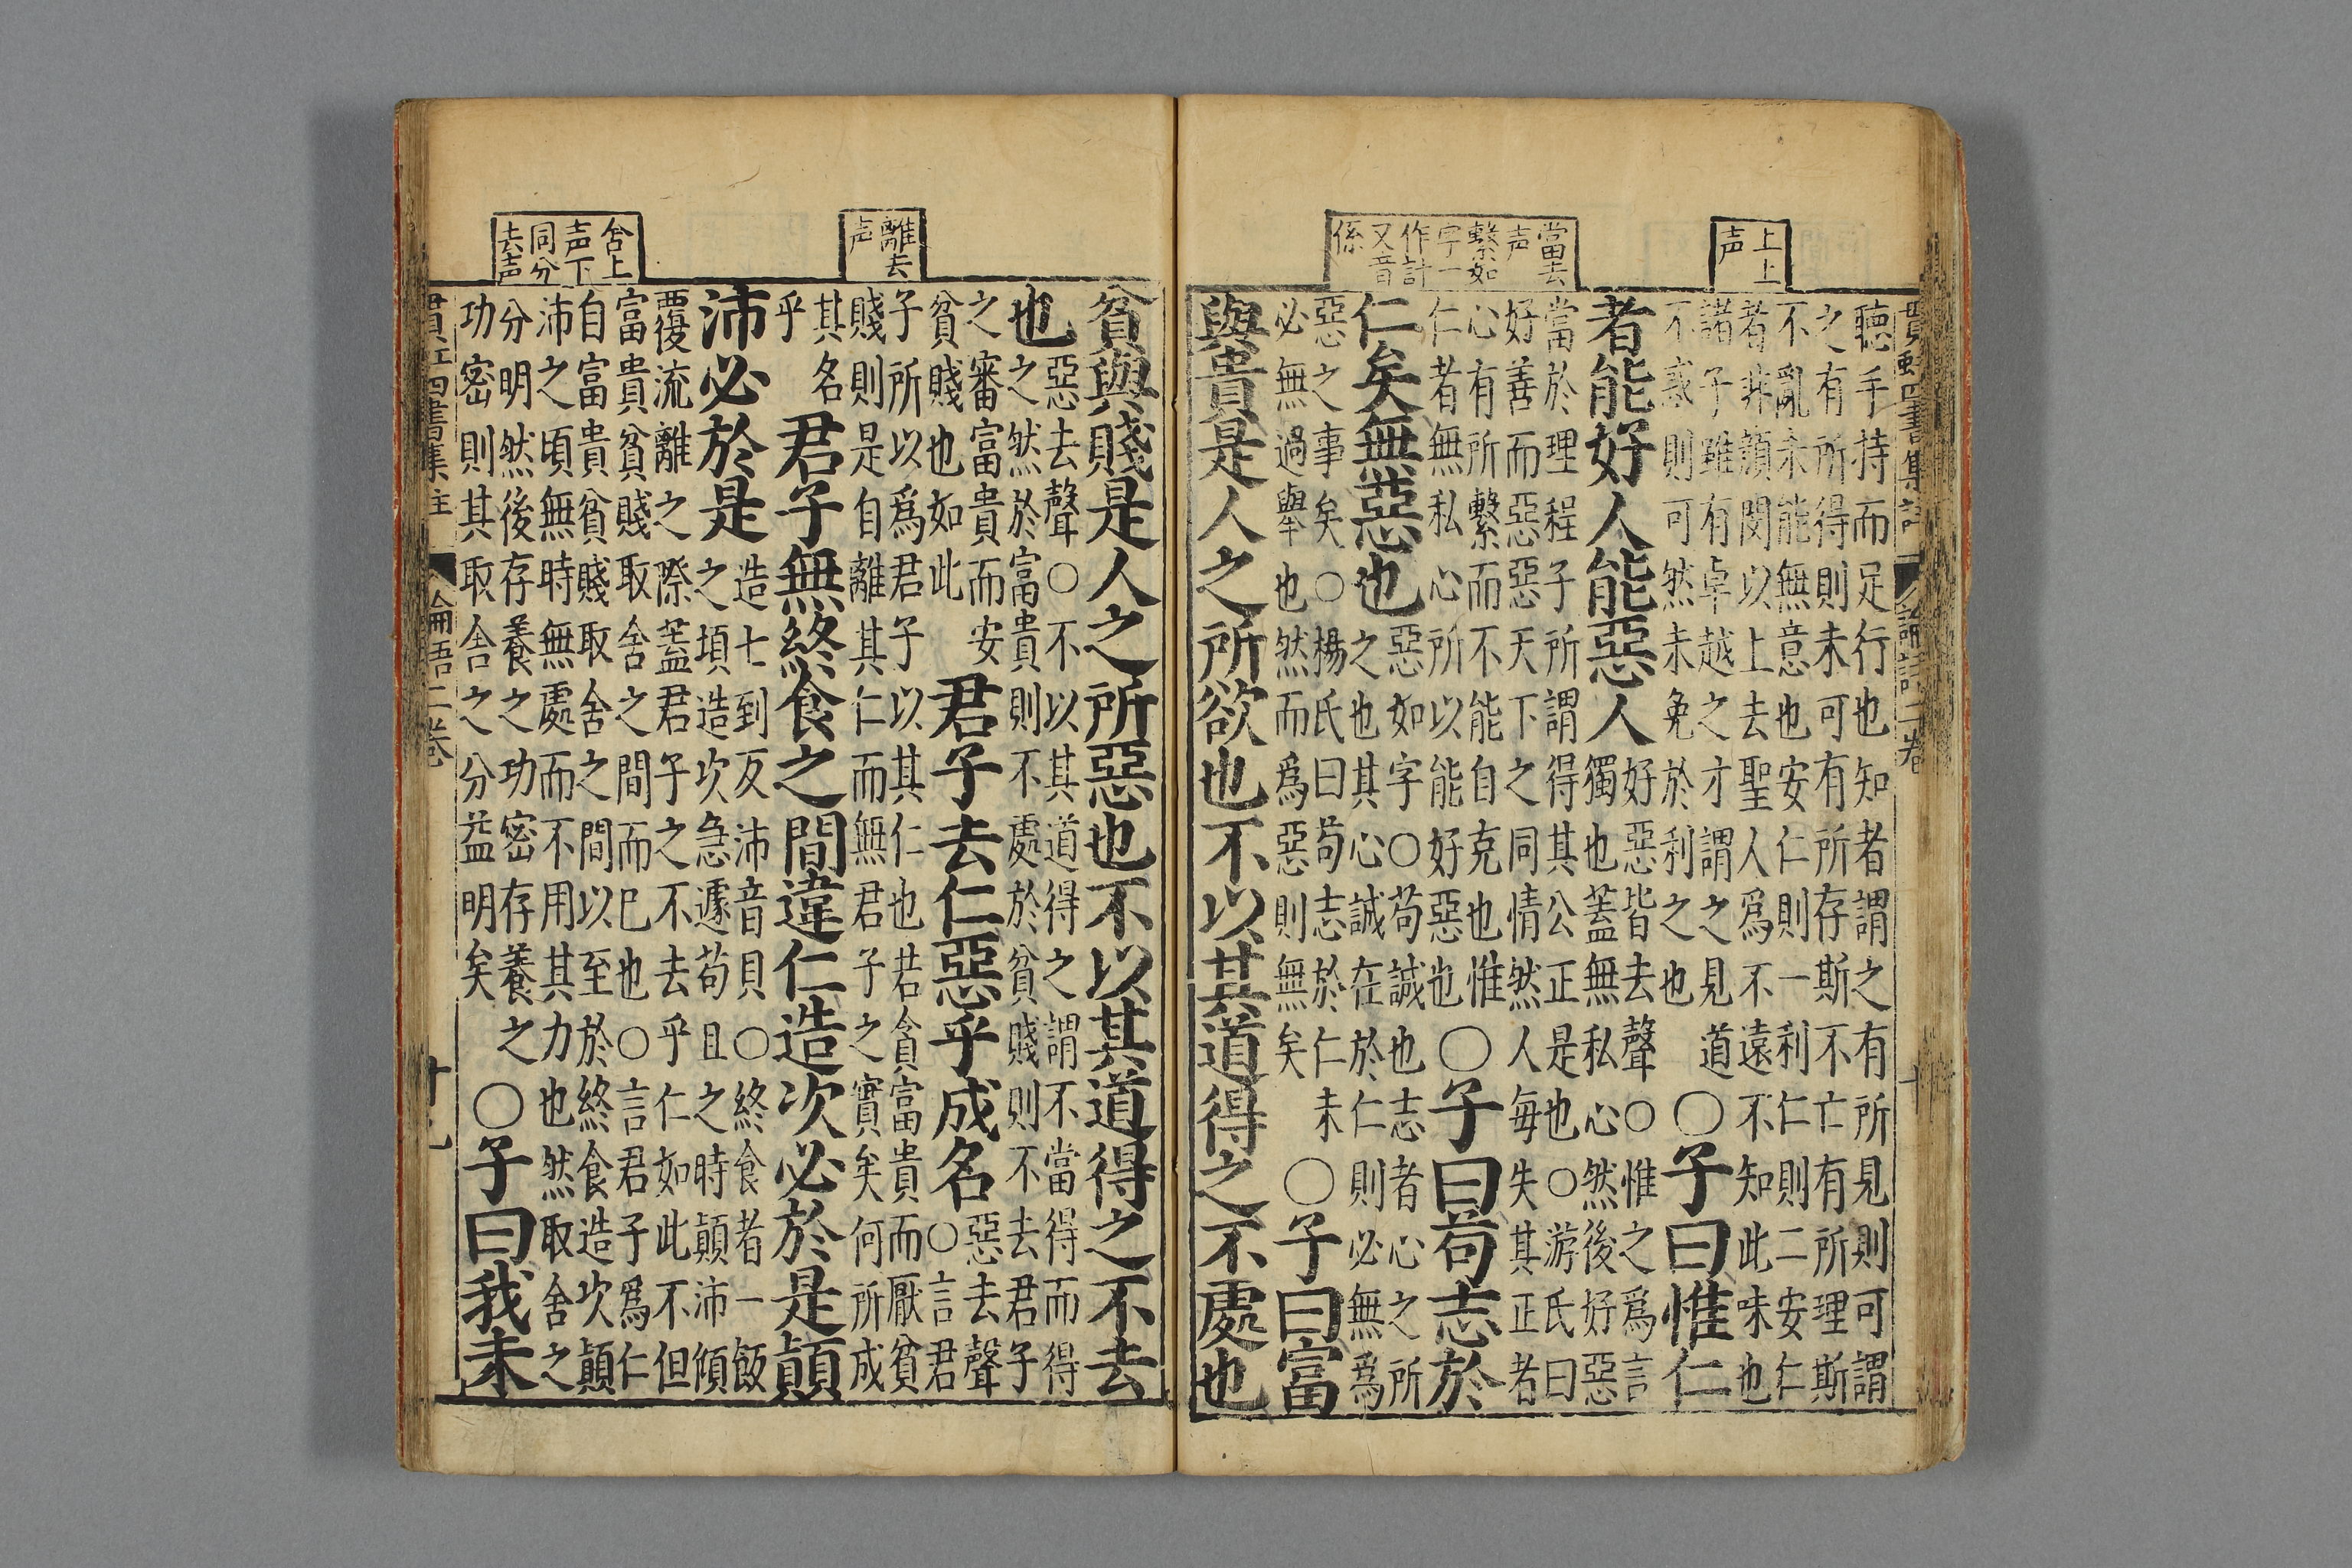 上上
声
當去
声
繫如
字一
作計
又音
係
聽手持而足行也知者謂之有所見則可謂
之有所得則未可有所存斯不亡有所理斯
不亂未能無意也安仁則一利仁則二安仁
者非顏閔以上去聖人爲不遠不知此味也
諸子雖有卓越之才謂之見道
不惑則可然未免於利之也
〇子曰惟仁
者能好人能惡人
好惡皆去聲○惟之爲言
獨也蓋無私心然後好惡
當於理程子所謂得其公正是也○游氏曰
好善而惡惡天下之同情然人每失其正者
心有所繫而不能自克也惟
仁者無私心所以能好惡也
〇子曰苟志於
仁矣無惡也
惡如字○苟誠也志者心之所
之也其心誠在於仁則必無爲
惡之事矣○楊氏曰苟志於仁未
必無過舉也然而爲惡則無矣
〇子曰富
與貴是人之所欲也不以其道得之不處也
離去
声
舍上
声下
同分
去声
貧與賤是人之所惡也不以其道得之不去
也
惡去聲○不以其道得之謂不當得而得
之然於富貴則不處於貧賤則不去君子
之審富貴而安
貧賤也如此
君子去仁惡乎成名
惡去聲
○言君
子所以爲君子以其仁也若貪富貴而厭貧
賤則是自離其仁而無君子之實矣何所成
其名
乎
君子無終食之間違仁造次必於是顛
沛必於是
造七到反沛音貝○終食者一飯
之頃造次急遽苟且之時顛沛傾
覆流離之際蓋君子之不去乎仁如此不但
富貴貧賤取舍之間而已也○言君子爲仁
自富貴貧賤取舍之間以至於終食造次顛
沛之頃無時無處而不用其力也然取舍之
分明然後存養之功密存養之
功密則其取舍之分益明矣
〇子曰我未
四書集註
論語二卷